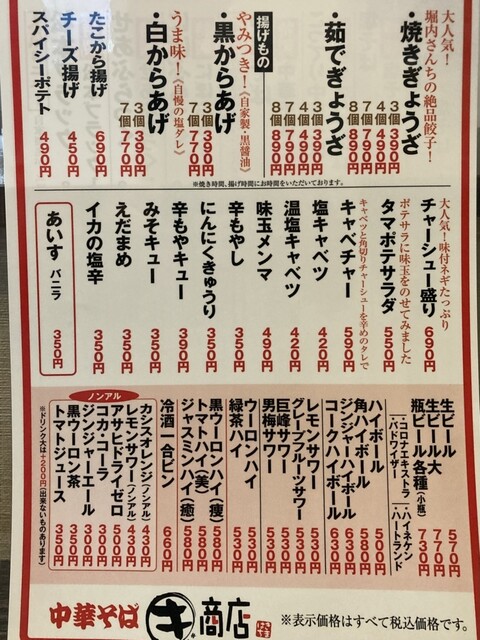 大人気!
堀内さんちの絶品餃子!
・焼きぎょうざ
3個 390円
4個 490円
7個 790円
8個 890円
・茹でぎょうざ
3個 390円
4個 490円
7個 790円
8個 890円
揚げもの
やみつき!〈自家製・黒醤油〉
・黒からあげ
3個 390円
7個 770円
うま味!〈自慢の塩ダレ〉
・白からあげ
3個 390円
7個 770円
たこから揚げ 690円
チーズ揚げ 450円
スパイシーポテト 490円
※焼き時間、揚げ時間にお時間をいただいております。
大人気!味付ネギたっぷり
チャーシュー盛り 690円
ポテサラに味玉をのせてみました
タマポテサラダ 550円
キャベツと角切りチャーシューを辛めのタレで
キャベチャー 590円
塩キャベツ 420円
温塩キャベツ 420円
味玉メンマ 490円
辛もやし 350円
にんにくきゅうり 350円
辛もやキュー 390円
みそキュー 350円
えだまめ 350円
イカの塩辛 350円
あいす バニラ 350円
生ビール 570円
生ビール大 770円
瓶ビール各種(小瓶) 730円
・コロナエキストラ ・ハイネケン
・バドワイザー ・ハートランド
ハイボール 500円
角ハイボール 580円
ジンジャーハイボール 630円
コークハイボール 630円
レモンサワー 530円
グレープフルーツサワー 580円
巨峰サワー 580円
男梅サワー 580円
ウーロンハイ 530円
緑茶ハイ 550円
黒ウーロンハイ(痩) 580円
トマトハイ(美) 580円
ジャスミンハイ(癒) 580円
冷酒一合ビン 660円
ノンアル
カシスオレンジ(ノンアル) 430円
レモンサワー(ノンアル) 430円
アサヒドライゼロ 540円
コカ・コーラ 300円
ジンジャーエール 300円
黒ウーロン茶 350円
トマトジュース 350円
※ドリンク大は+200円(出来ないものあります)
中華そば
キ
商店
※表示価格はすべて税込価格です。